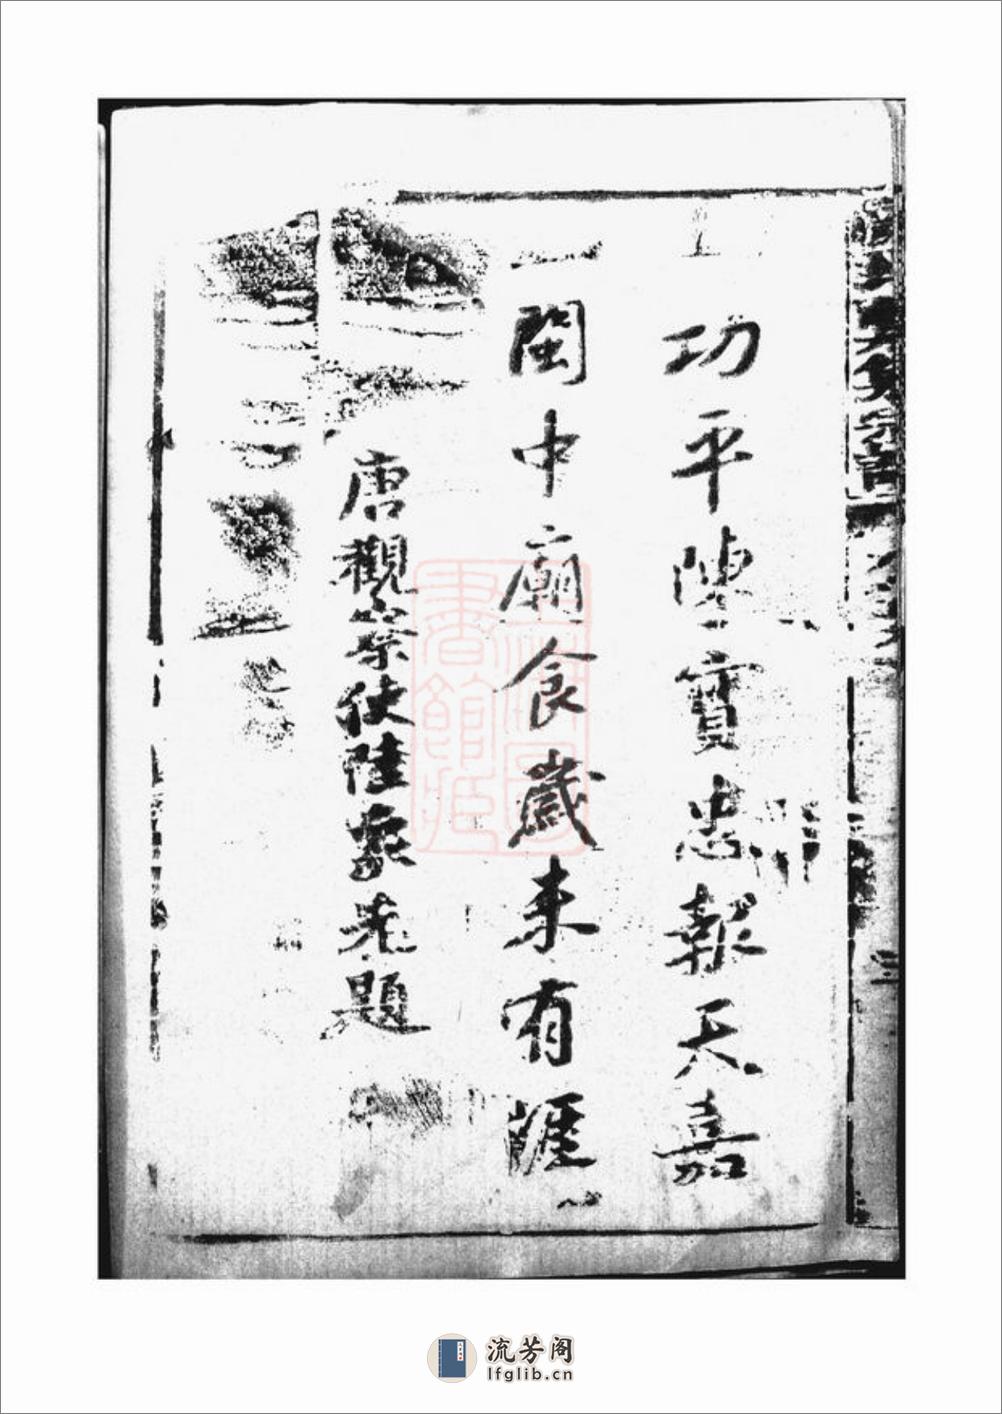 功平陳寶忠報天嘉
閩中廟食歲未有涯
唐觀察使陸象先題
流芳阁
lfglib.cn